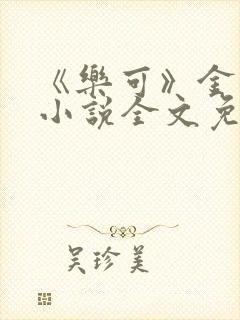 《樂可》金
小說全文免
吴珍美